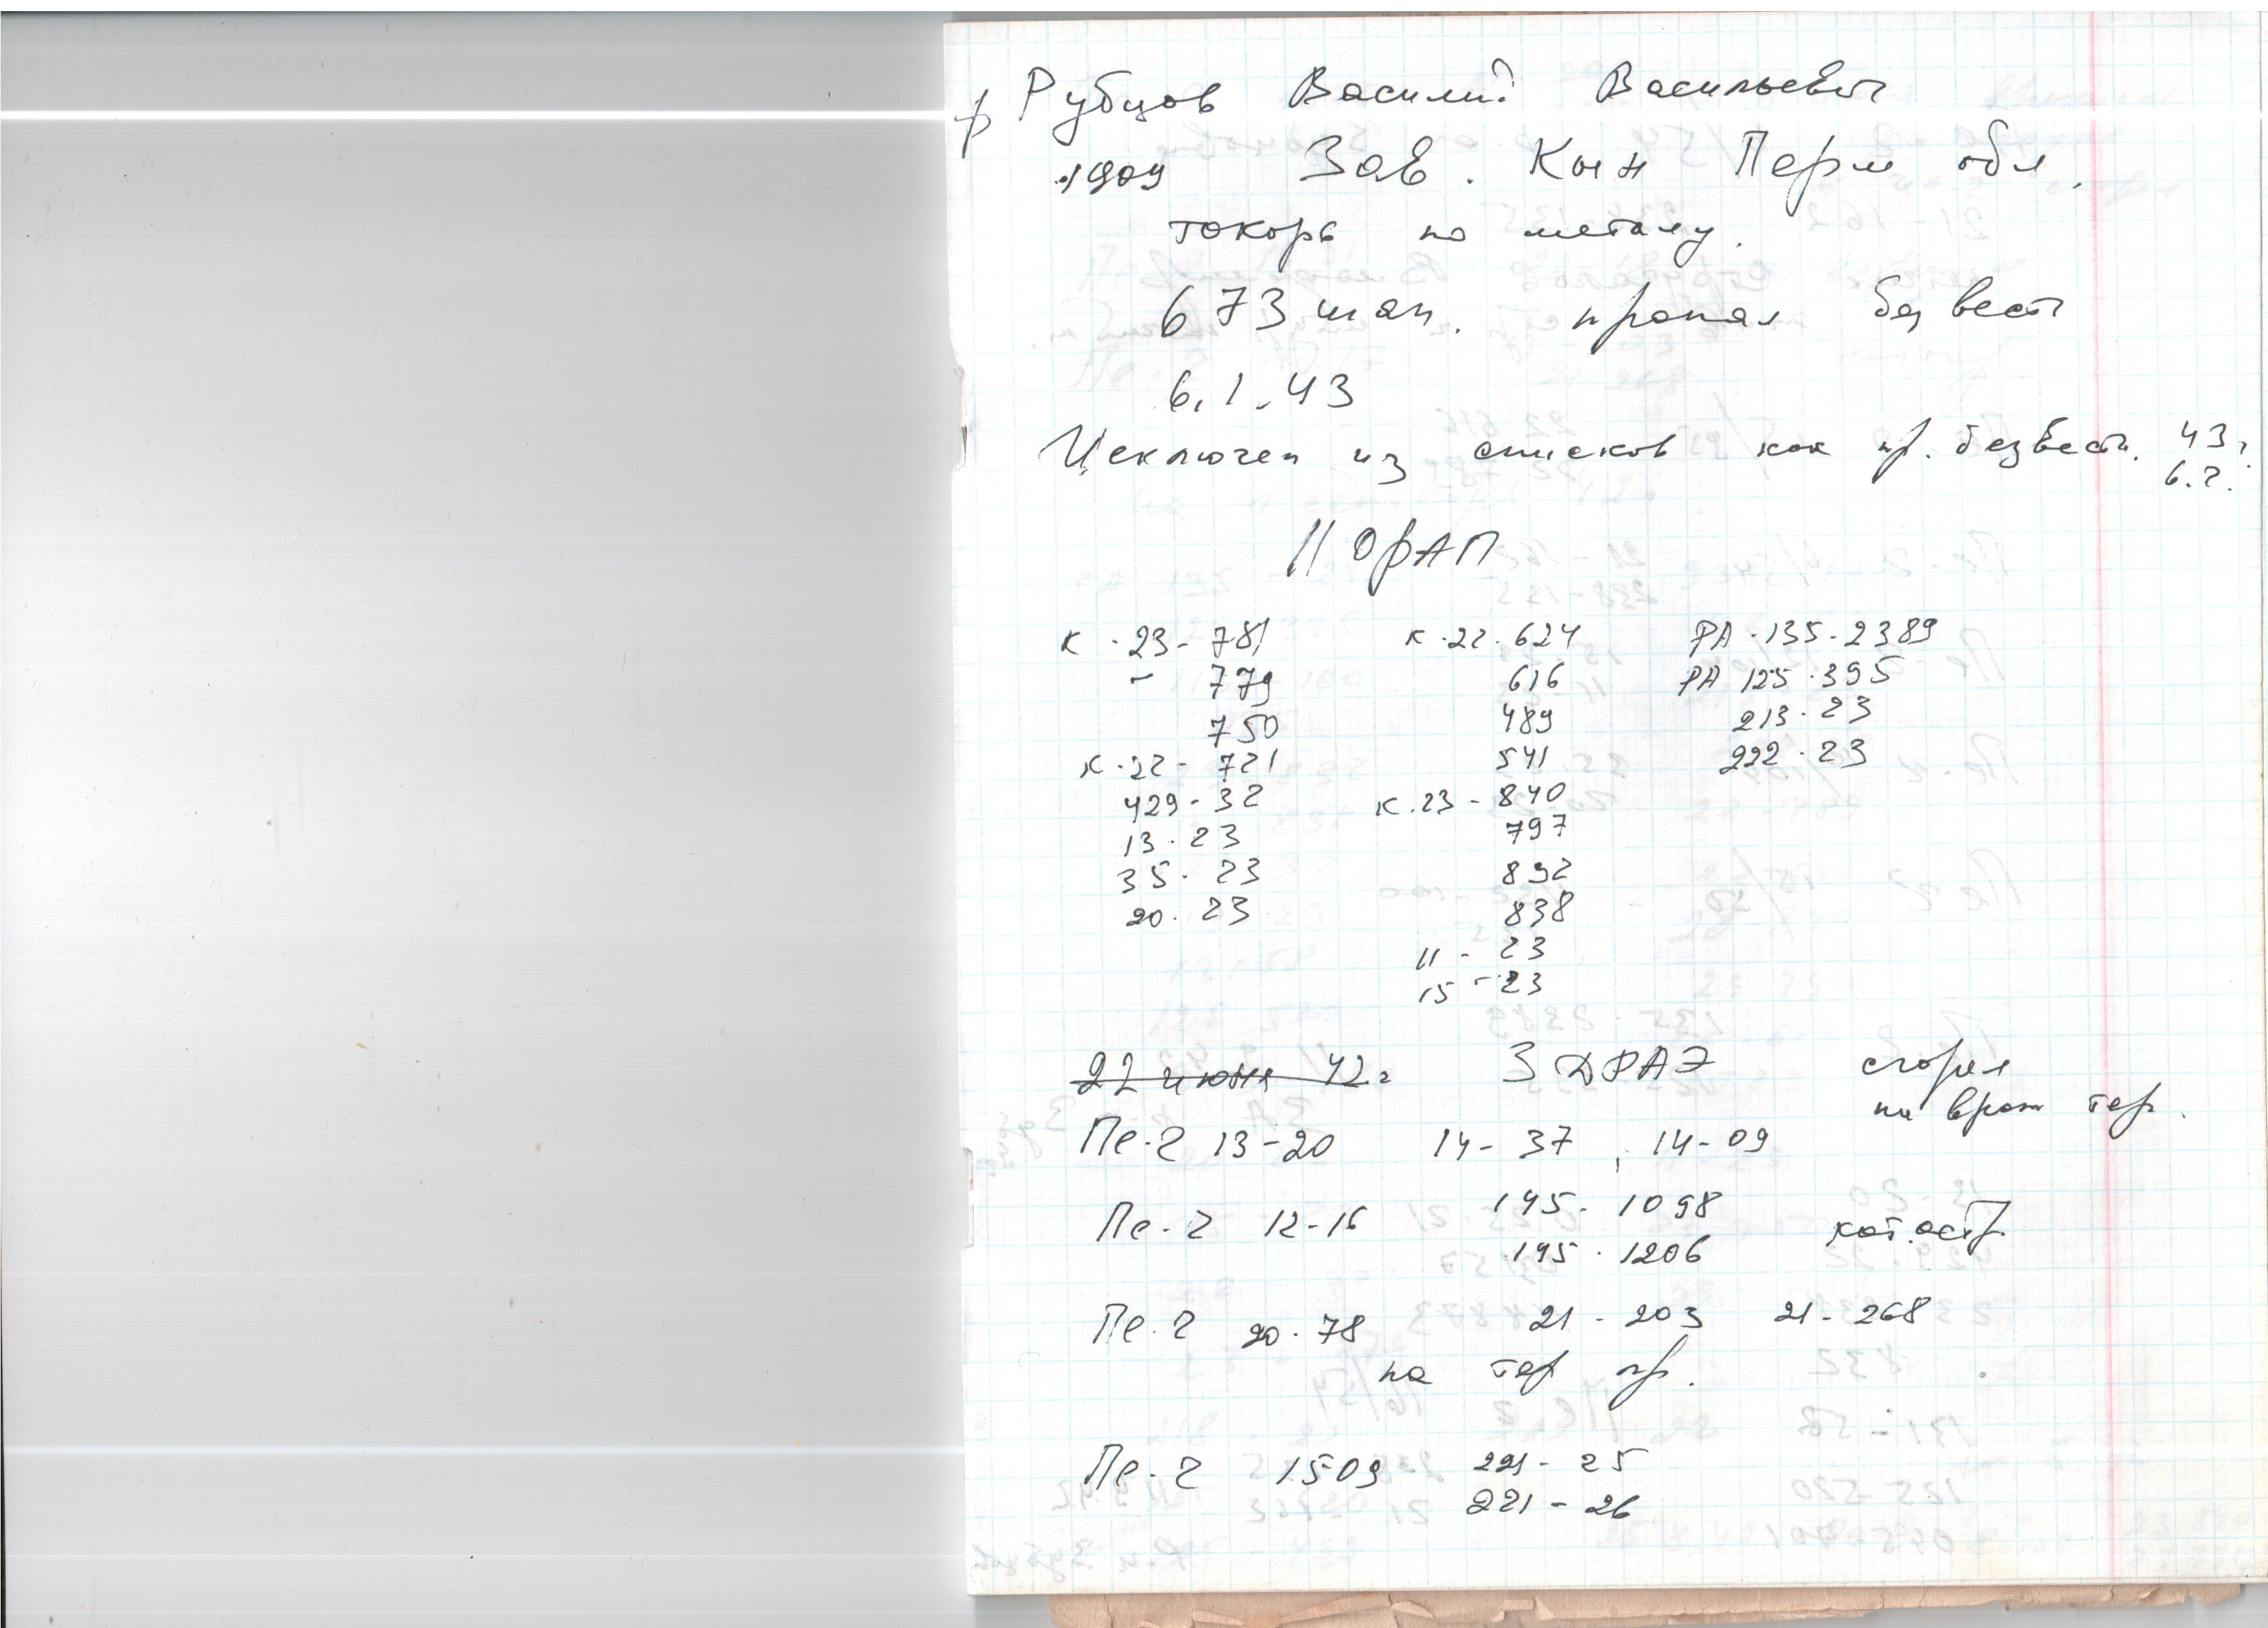 Рубцов Василий Васильевич
1909 Зав. Кын Перм обл.
токорь по металу.
673 шап. пропал без вест
6.1.43
Исключен из списков как пр. безвест. 43г.
6.2.
11 ОРАП
К·23-781 К·22·624 РА·135-2389
- 779 616 РА 125·395
750 489 213·23
К·22- 721 541 222·23
429-32 К.23-840
13·23 797
35·23 892
20·23 838
11-23
15-23
22 июня 42г 3 ДРАЭ сгорел
на враж тер.
Пе-2 13-20 14-37, 14-09
Пе-2 12-16 145·1098 кат.остр.
195·1206
Пе-2 20·78 21-203 21-268
на тер пр.
Пе-2 1509 221-25
221-26